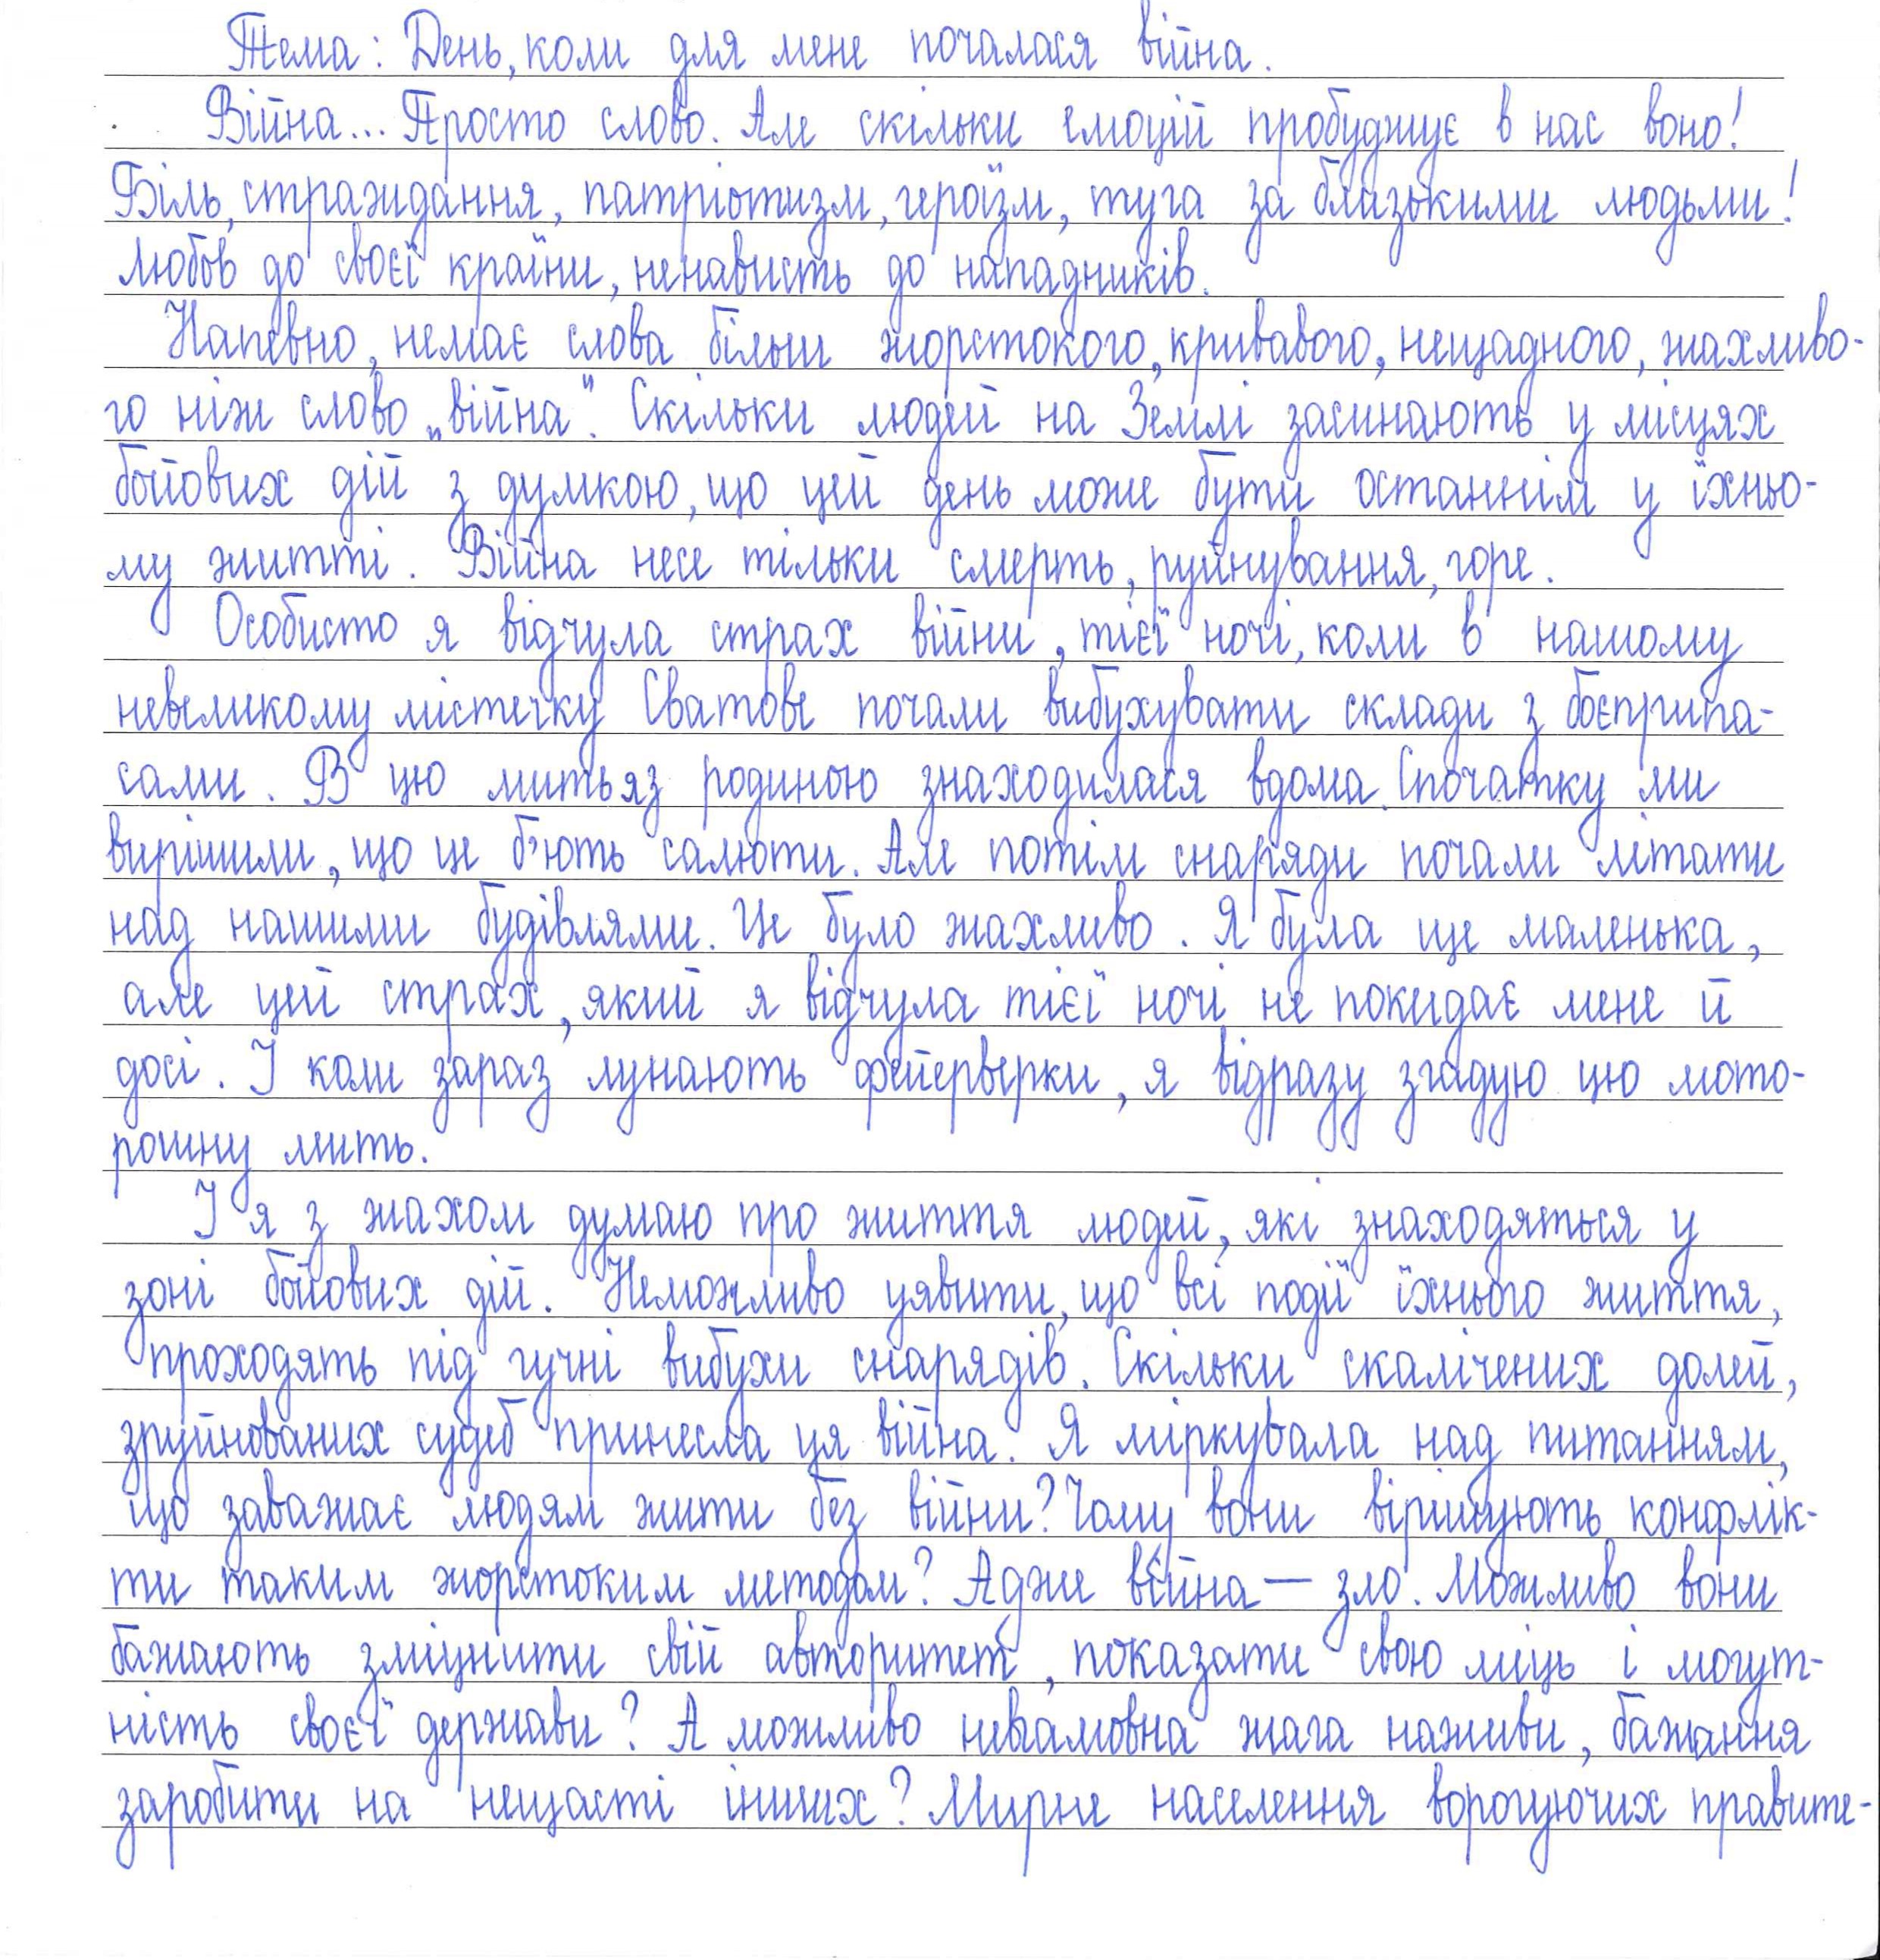 Тема: День, коли для мене почалася війна.
Війна... Просто слово. Але скільки емоцій пробуджує в нас воно!
Біль, страждання, патріотизм, героїзм, туга за близькими людьми!
Любов до своєї країни, ненависть до нападників.
Напевно, немає слова більш жорстокого, кривавого, нещадного, жахливо-
го ніж слово „війна". Скільки людей на Землі засинають у місцях
бойових дій з думкою, що цей день може бути останнім у їхньо-
му житті. Війна несе тільки смерть, руйнування, горе.
Особисто я відчула страх війни, тієї ночі, коли в нашому
невеликому містечку Сватове почали вибухувати склади з боєприпа-
сами. В цю мить я з родиною знаходилася вдома. Спочатку ми
вирішили, що це б'ють салюти. Але потім снаряди почали літати
над нашими будівлями. Це було жахливо. Я була ще маленька,
але цей страх, який я відчула тієї ночі не покидає мене й
досі. І коли зараз лунають фейерверки, я відразу згадую цю мото-
рошну мить.
І я з жахом думаю про життя людей, які знаходяться у
зоні бойових дій. Неможливо уявити, що всі події їхнього життя,
проходять під гучні вибухи снарядів. Скільки скалічених долей,
зруйнованих судеб принесла ця війна. Я міркувала над питанням,
що заважає людям жити без війни? Чому вони вірішують конфлік-
ти таким жорстоким методом? Адже війна — зло. Можливо вони
бажають зміцнити свій авторитет, показати свою міць і могут-
ність своєї держави? А можливо невгамовна жага наживи, бажання
заробити на нещасті інших? Мирне населення ворогуючих правите-